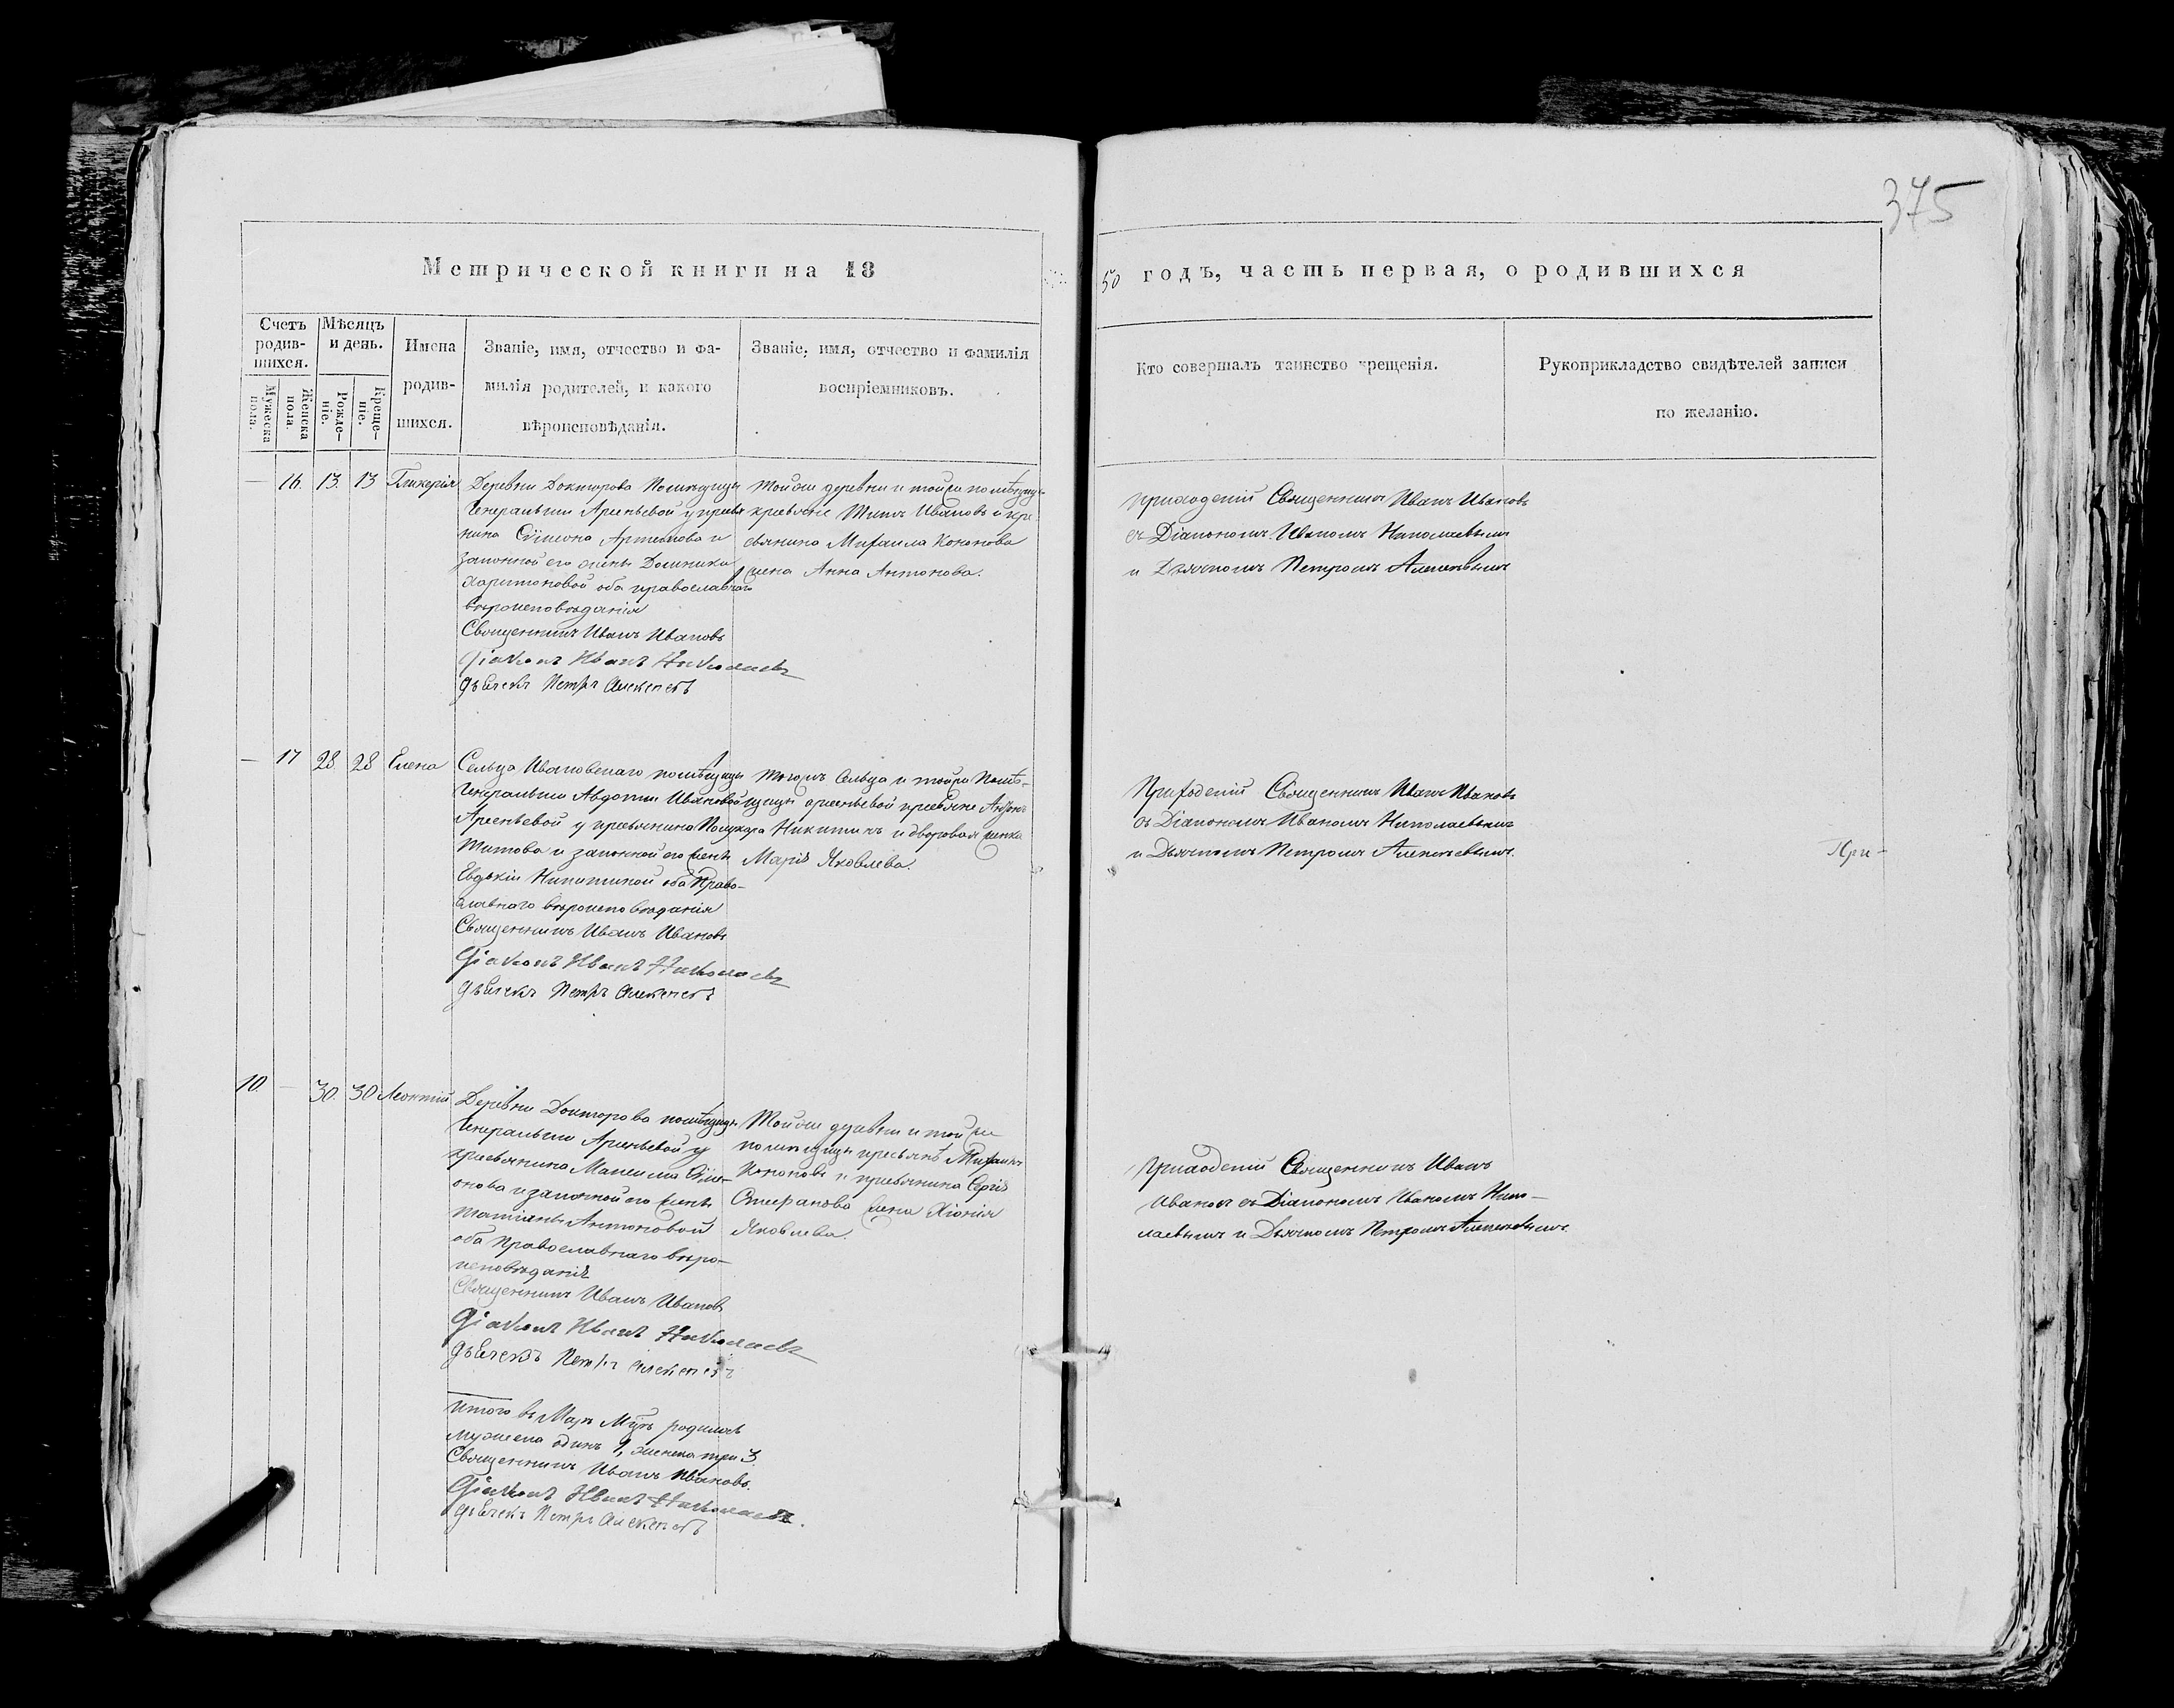 375
Метрической книги на 18
50 годъ, часть первая, о родившихся
Счетъ родив-шихся.
Мужеска пола.
Женска пола.
Мѣсяцъ и день.
Рожде-ніе.
Креще-ніе.
Имена
родив-
шихся.
Званіе, имя, отчество и фа-
милія родителей, и какого
вѣроисповѣданія.
Званіе, имя, отчество и фамилія
воспріемниковъ.
Кто совершалъ таинство крещенія.
Рукоприкладство свидѣтелей записи
по желанію.
— 16. 13. 13 Гликерія
Деревни Докторова Помѣщицы
Генеральши Арсеньевой у крестья
нина Сѵмеона Артемова и
законной его жены Домники
Харитоновой оба православнаго
вѣроисповѣданія
Священникъ Иванъ Ивановъ
Діаконъ Иванъ Николаевъ
Дьячекъ Петръ Алексеевъ
Той же деревни и той же помѣщицы
крестьяне Титъ Ивановъ и кре
стьянина Михаила Кононова
жена Анна Антонова.
Приходскій Священникъ Иванъ Ивановъ
съ Діакономъ Иваномъ Николаевымъ
и Дьячкомъ Петромъ Алексѣевымъ
— 17 28. 28 Елена
Сельца Ивановскаго помѣщицы
Генеральши Авдотьи Ивановой
Арсеньевой у крестьянина Поликарпа
Титова и законной его жены
Евдокіи Никитиной оба Право-
славнаго вѣроисповѣданія
Священникъ Иванъ Ивановъ
Діаконъ Иванъ Николаевъ
Дьячекъ Петръ Алексеевъ
Тогожъ Сельца и той же Помѣ-
щицы Арсеньевой крестьяне
Никитинъ и дворовая женка
Марія Яковлева.
Приходскій Священникъ Иванъ Ивановъ
съ Діакономъ Иваномъ Николаевымъ
и Дьячкомъ Петромъ Алексѣевымъ.
При-
10 — 30. 30 Леонтій
Деревни Докторова помѣщицы
Генеральши Арсеньевой у
крестьянина Максима Сѵме-
онова и законной его жены
Татіаны Антоновой
оба Православнаго вѣро-
исповѣданія
Священникъ Иванъ Ивановъ
Діаконъ Иванъ Николаевъ
Дьячекъ Петръ Алексеевъ
Той же деревни и той же
помѣщицы крестьянѣ Михаилъ
Кононовъ и крестьянина Сергія
Стефанова жена Хіонія
Яковлева.
Приходскій Священникъ Иванъ
Ивановъ съ Діакономъ Иваномъ Нико-
лаевымъ и Дьячкомъ Петромъ Алексѣевымъ.
Итого въ родилось
мужеска одинъ 1, женска три 3.
Священникъ Иванъ Ивановъ.
Діаконъ Иванъ Николаевъ.
Дьячекъ Петръ Алексеевъ